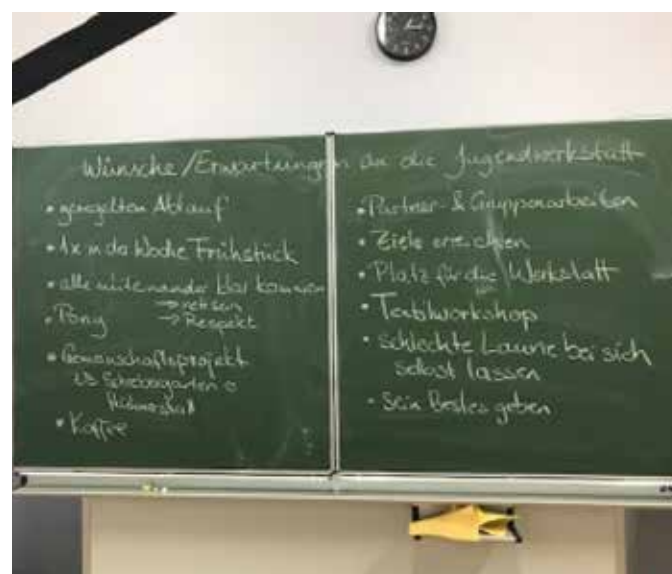 Wünsche/Erwartungen an die Jugendwerkstatt
• geregelten Ablauf
• 1x in der Woche Frühstück
• alle miteinander klar kommen
→ nett sein
• Pony → Respekt
• Gemeinschaftsprojekt
z.B. Schrebergarten o
Hühnerstall
• Kaffee
• Partner- & Gruppenarbeiten
• Ziele erreichen
• Platz für die Werkstatt
• Textilworkshop
• schlechte Laune bei sich
selbst lassen
• sein Bestes geben